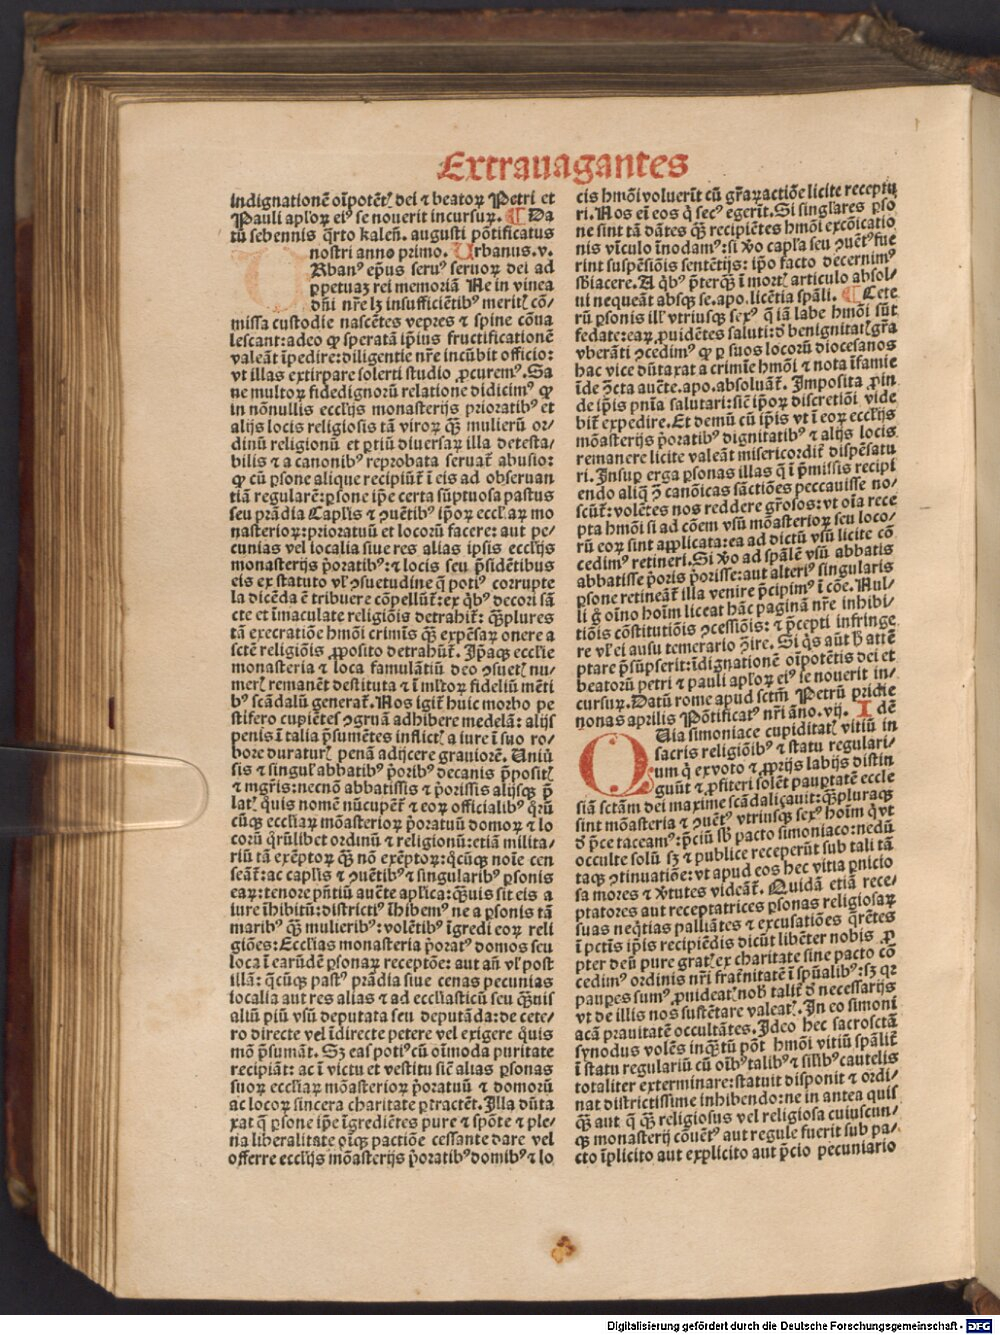 Extrauagantes
indignationē oīpotēt{ dei ⁊ beatoꝝ Petri et
Pauli apl'oꝝ eiꝰ se nouerit incursuꝝ. ¶ Da
tū sebennis q̄rto kaleñ. augusti pōtificatus
nostri anno primo. Urbanus.v.
URbanꝰ ep̄us seruꝰ seruoꝝ dei ad
ꝑpetuaꝫ rei memoriā Ne in vinea
dñi nr̄e lꝫ insufficiētibꝰ merit{ cō⸗
missa custodie nascētes vepres ⁊ spine cōua
lescant:adeo ꝙ speratā ip̄ius fructificationē
valeāt īpedire:diligentie nr̄e incūbit officio:
vt illas extirpare solerti studio ꝓcuremꝰ. Sa
ne multoꝝ fidedignorū relatione didicimꝰ ꝙ
in nōnullis eccl'ijs monasterijs prioratibꝰ et
alijs locis religiosis tā viroꝝ qꝫ̄ mulierū or⸗
dinū religionū et ꝑtiū diuersaꝝ illa detesta⸗
bilis ⁊ a canonibꝰ reprobata seruat̄ abusio:
ꝙ cū ꝑsone alique recipiūt̄ ī eis ad obseruan
tiā regularē:ꝑsone ip̄e certa sūptuosa pastus
seu prādia Capl'is ⁊ ꝯuētibꝰ ip̄oꝝ eccl'aꝝ mo
nasterioꝝ:prioratuū et locorū facere: aut pe⸗
cunias vel iocalia siue res alias ipsis eccl'ijs
monasterijs p̄oratibꝰ:⁊ locis seu p̄sidētibus
eis ex statuto vl' ꝯsuetudine q̄ potiꝰ corrupte
la dicēda ē tribuere cōpellūt̄:ex qͥbꝰ decori sā
cte et īmaculate religiōis detrahit̄: qꝫ̄plures
tā execratiōe hmōi crimīs qꝫ̄ expēsaꝝ onere a
sctē religiōis ꝓposito detrahūt̄. Ip̄aqꝫ eccl'ie
monasteria ⁊ loca famulātiū deo ꝯsuet{ nu⸗
mer{ remanēt destituta ⁊ ī ml'toꝝ fideliū mēti
bꝰ scādalū generat̄. Nos igit̄ huic morbo pe
stifero cupiētes ꝯgruā adhibere medelā: alijs
penis ī talia p̄sumētes inflict{ a iure ī suo ro⸗
bore duratur{ penā adijcere grauiorē. Uniū
sis ⁊ singul' abbatibꝰ p̄oribꝰ decanis p̄posit{
⁊ mgr̄is:necnō abbatissis ⁊ p̄orissis alijsqꝫ p̄
lat{ qͥuis nomē nūcupēt̄ ⁊ eoꝝ officialibꝰ q̄rū
cūqꝫ eccl'iaꝝ mōasterioꝝ p̄oratuū domoꝝ ⁊ lo
corū q̄rūlibet ordinū ⁊ religionū:etiā milita⸗
riū tā exēptoꝝ qꝫ̄ nō exēptoꝝ:q̄cūqꝫ noīe cen
seāt̄:ac capl'is ⁊ ꝯuētibꝰ⁊ singularibꝰ ꝑsonis
eaꝝ:tenore pn̄tiū aucte apl'ica:qꝫ̄uis sit eis a
iure īhibitū:districtiꝰ īhibemꝰ ne a ꝑsonis tā
maribꝰ qꝫ̄ mulieribꝰ: volētibꝰ īgredi eoꝝ reli
giōes:Eccl'ias monasteria p̄oratꝰ domos seu
loca ī earūdē ꝑsonaꝝ receptōe: aut añ vl' post
illā: q̄cūqꝫ pastꝰ prādia siue cenas pecunias
iocalia aut res alias ⁊ ad eccl'iasticū seu qꝫ̄uis
aliū piū vsū deputata seu deputāda:de cete⸗
ro directe vel īdirecte petere vel exigere q̄uis
mō p̄sumāt. Sꝫ eas potiꝰ cū oīmoda puritate
recipiāt: ac ī victu et vestitu sic̄ alias ꝑsonas
suoꝝ eccl'iaꝝ mōasterioꝝ p̄oratuū ⁊ domorū
ac locoꝝ sincera charitate ꝑtractēt. Illa dūta
xat q̄ ꝑsone ip̄e īgrediētes pure ⁊ spōte ⁊ ple⸗
na liberalitate oīqꝫ pactiōe cessante dare vel
offerre eccl'ijs mōasterijs p̄oratibꝰ domibꝰ ⁊ lo
cis hmōi voluerīt cū gr̄aꝝ actiōe licite receptu
ri. Nos eī eos q̄ secꝰ egerīt. Si singl'ares ꝑso
ne sint tā dātes qꝫ̄ recipiētes hmōi excōicatio
nis vīculo īnodamꝰ: si ṽo capl'a seu ꝯuētꝰ fue
rint suspēsiōis sentētijs: ip̄o facto decernimꝰ
sb̄iacere. A qͥbꝰ p̄terqꝫ̄ ī mort{ articulo absol⸗
ui nequeāt absqꝫ se.apo.licētia sp̄ali. ¶ Cete
rū ꝑsonis ill' vtriusqꝫ sexꝰ q̄ iā labe hmōi sūt
fedate:eaꝝ ꝓuidētes saluti: đ benignitat{ gr̄a
vberāti ꝯcedimꝰ ꝙ ꝑ suos locorū diocesanos
hac vice dūtaxat a crimīe hmōi ⁊ nota īfamie
īde ꝯtcta aucte.apo.absoluāt̄. Imposita ꝓin
de ip̄is pn̄ia salutari: sic̄ ip̄oꝝ discretiōi vide
bit̄ expedire. Et demū cū ip̄is vt ī eoꝝ eccl'ijs
mōasterijs p̄oratibꝰ dignitatibꝰ ⁊ alijs locis
remanere licite valeāt misericordit̄ dispēsatu
ri. Insuꝑ erga ꝑsonas illas q̄ ī p̄missis recipi
endo aliq̄ ꝯ̄ canōicas sāctiōes peccauisse no⸗
scūt̄: volētes nos reddere gr̄osos: vt oīa rece
pta hmōi si ad cōem vsū mōasterioꝝ seu loco⸗
rū eoꝝ sint applicata: ea ad dictū vsū licite cō
cedimꝰ retineri. Si ṽo ad sp̄alē vsū abbatis
abbatisse p̄oris p̄orisse: aut alteriꝰ singularis
ꝑsone retineāt̄ illa venire p̄cipimꝰ ī cōe. Nul⸗
li ḡ oīno hoīm liceat hāc paginā nr̄e inhibi⸗
tiōis cōstitutiōis ꝯcessiōis: ⁊ p̄cepti infringe
re vl' ei ausu temerario ꝯ̄ire. Si qͥs aūt h̄ attē
ptare p̄sūpserit:īdignationē oīpotētis dei et
beatorū petri ⁊ pauli apl'oꝝ eiꝰ se nouerit in⸗
cursuꝝ. Datū rome apud sctm̄ Petrū pridie
nonas aprilis Pōtificatꝰ nr̄i āno.vij. Idē
QUia simoniace cupiditat{ vitiū in
sacris religiōibꝰ ⁊ statu regulari⸗
um q̄ ex voto ⁊ ꝓprijs labijs distin
guūt ⁊ ꝓfiteri solēt pauꝑtatē eccle
siā sctām dei maxime scādaliçauit: qꝫ̄pluraqꝫ
sint mōasteria ⁊ ꝯuētꝰ vtriusqꝫ sexꝰ hoīm q̄ vt
đ p̄ce taceamꝰ: p̄ciū sb̄ pacto simoniaco: nedū
occulte solū sꝫ ⁊ publice receperūt sub tali tā
taqꝫ ꝯtinuatiōe: vt apud eos hec vitia ꝑnicio
sa mores ⁊ ṽtutes videāt̄. Quidā etiā rece⸗
ptatores aut receptatrices ꝑsonas religiosaꝝ
suas neq̄tias palliātes ⁊ excusatiōes q̄rētes
ī pctīs ip̄is recipiēdis dicūt libēter nobis ꝓ
pter deū pure grat{ ex charitate sine pacto cō
cedimꝰ ordinis nr̄i frat̄nitatē ī sp̄ualibꝰ: sꝫ qꝛ
pauꝑes sumꝰ ꝓuideat{ nob̄ talit̄ đ necessarijs
vt de illis nos sustētare valeat{. In eo simoni
acā prauitatē occultātes. Ideo hec sacrosctā
synodus volēs inqꝫ̄tū pōt hmōi vitiū sp̄alit̄
ī statu regulariū cū oībꝰ talibꝰ ⁊ sil'ibꝰ cautelis
totaliter exterminare: statuit disponit ⁊ ordi⸗
nat districtissime inhibendo: ne in antea quis
qꝫ̄ aut q̄ qꝫ̄ religiosus vel religiosa cuiuscun⸗
qꝫ monasterij cōuētꝰ aut regule fuerit sub pa⸗
cto īplicito aut explicito aut p̄cio pecuniario
Digitalisierung gefördert durch die Deutsche Forschungsgemeinschaft - DFG